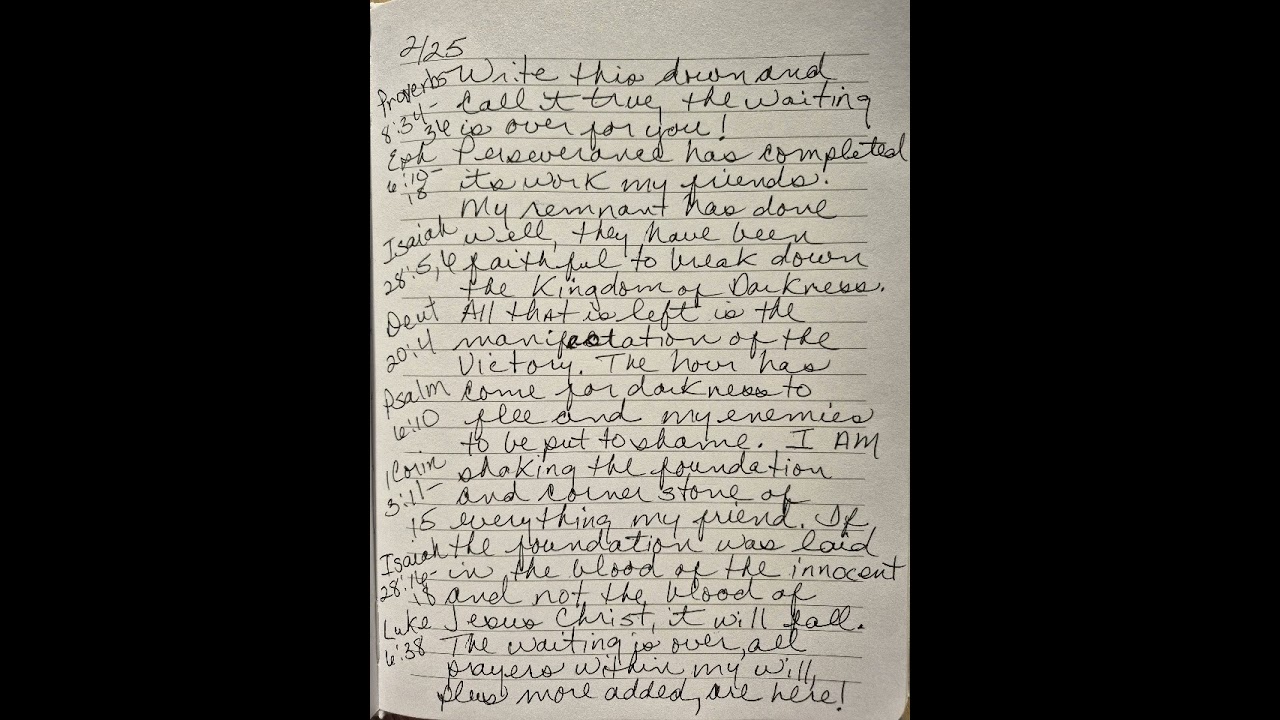 2/25
Proverbs Write this down and
8:34- Call it true, the waiting
36 is over for you!
Eph Perseverance has completed
6:10- its work my friends.
18 My remnant has done
Isaiah well, they have been
28:5,6 faithful to break down
the Kingdom of Darkness.
Deut All that is left is the
20:4 manifestation of the
Victory. The hour has
Psalm come for darkness to
6:10 flee and my enemies
to be put to shame. I AM
1 Corin shaking the foundation
3:11- and corner stone of
15 everything my friend. If
Isaiah the foundation was laid
28:16- in the blood of the innocent
18 and not the blood of
Luke Jesus Christ, it will fall.
6:38 The waiting is over, all
prayers within my will,
plus more added, are here!